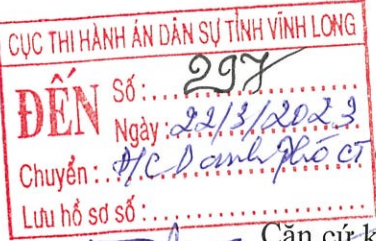 CỤC THI HÀNH ÁN DÂN SỰ TỈNH VĨNH LONG
ĐẾN Số: 297
Ngày: 22/3/2023
Chuyển: Đ/C Danh Phó CT
Lưu hồ sơ số:
Căn cứ k